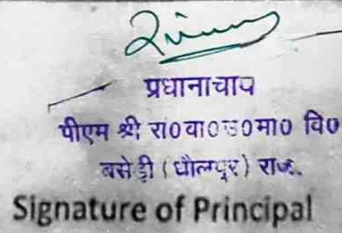 प्रधानाचाय
पीएम श्री रा0वा0उ0मा0 वि0
बसेड़ी (धौलपुर) राज.
Signature of Principal